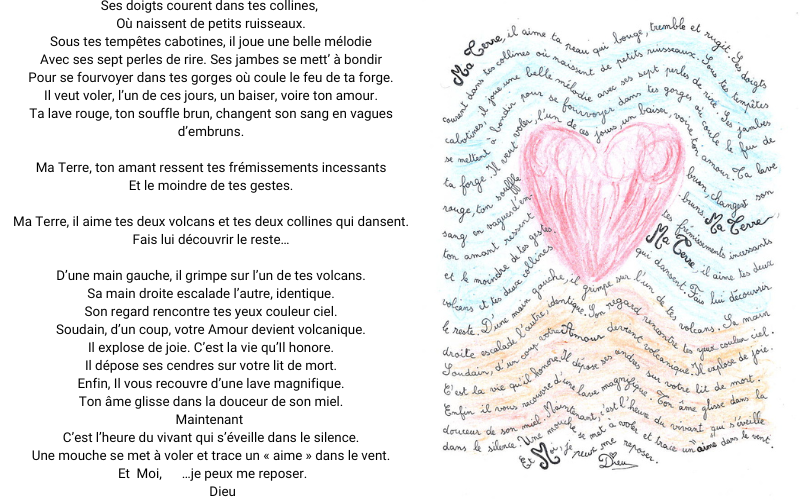 Ses doigts courent dans tes collines,
Où naissent de petits ruisseaux.
Sous tes tempêtes cabotines, il joue une belle mélodie
Avec ses sept perles de rire. Ses jambes se mett' à bondir
Pour se fourvoyer dans tes gorges où coule le feu de ta forge.
Il veut voler, l'un de ces jours, un baiser, voire ton amour.
Ta lave rouge, ton souffle brun, changent son sang en vagues
d'embruns.
Ma Terre, ton amant ressent tes frémissements incessants
Et le moindre de tes gestes.
Ma Terre, il aime tes deux volcans et tes deux collines qui dansent.
Fais lui découvrir le reste…
D'une main gauche, il grimpe sur l'un de tes volcans.
Sa main droite escalade l'autre, identique.
Son regard rencontre tes yeux couleur ciel.
Soudain, d'un coup, votre Amour devient volcanique.
Il explose de joie. C'est la vie qu'Il honore.
Il dépose ses cendres sur votre lit de mort.
Enfin, Il vous recouvre d'une lave magnifique.
Ton âme glisse dans la douceur de son miel.
Maintenant
C'est l'heure du vivant qui s'éveille dans le silence.
Une mouche se met à voler et trace un « aime » dans le vent.
Et Moi, …je peux me reposer.
Dieu
Ma Terre, il aime ta peau qui bouge, tremble et rugit. Ses doigts
courent dans tes collines où naissent de petits ruisseaux. Sous tes tempêtes
cabotines, il joue une belle mélodie avec ses sept perles de rire. Ses jambes
se mettent à bondir pour se fourvoyer dans tes gorges où coule le feu de
ta forge. Il veut voler, l'un de ces jours, un baiser, voire ton amour. Ta lave
rouge, ton souffle brun, changent son
sang en vagues d'embruns. Ma Terre
ton amant ressent tes frémissements incessants
et le moindre de tes gestes. Ma Terre, il aime tes deux
volcans et tes deux collines qui dansent. Fais lui découvrir
le reste. D'une main gauche, il grimpe sur l'un de tes volcans. Sa main
droite escalade l'autre, identique. Son regard rencontre tes yeux couleur ciel.
Soudain, d'un coup votre Amour devient volcanique. Il explose de joie.
C'est la vie qu'il honore. Il dépose ses cendres sur votre lit de mort.
Enfin il vous recouvre d'une lave magnifique. Ton âme glisse dans la
douceur de son miel. Maintenant, c'est l'heure du vivant qui s'éveille
dans le silence. Une mouche se met à voler et trace un "aime" dans le vent.
Et Moi, je peux me reposer.
Dieu